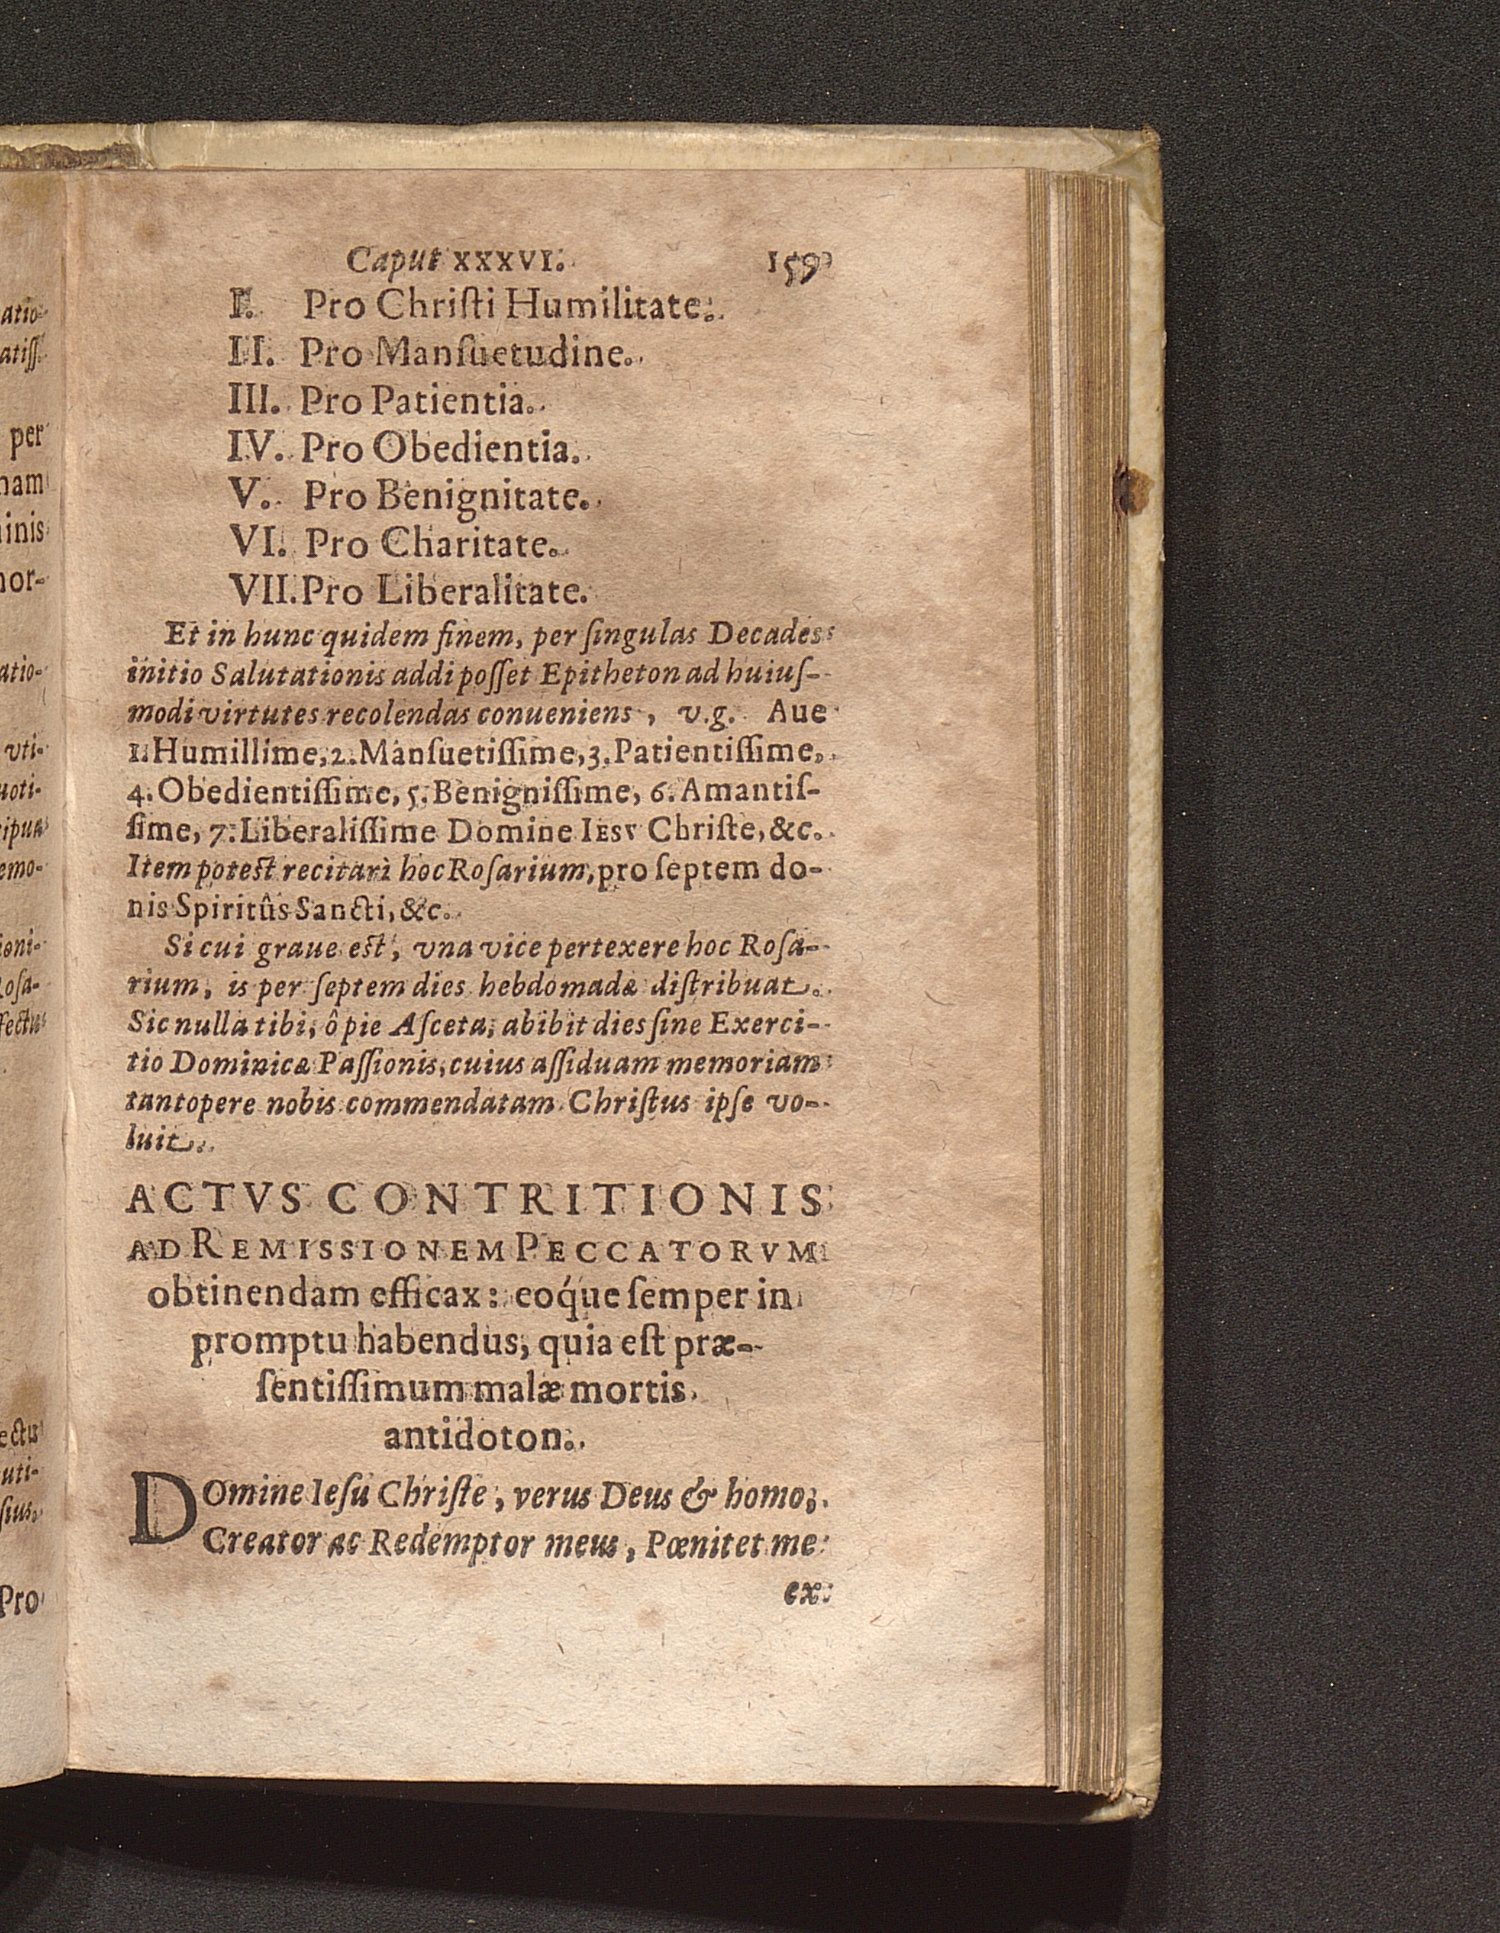 Caput XXXVI. 159
I. Pro Chriſti Humilitate.
II. Pro Manſuetudine.
III. Pro Patientia.
IV. Pro Obedientia.
V. Pro Benignitate.
VI. Pro Charitate.
VII. Pro Liberalitate.
Et in hunc quidem finem, per ſingulas Decades
initio Salutationis addi poſſet Epitheton ad huiuſ-
modi virtutes recolendas conueniens, v.g. Aue
1. Humillime, 2. Manſuetiſſime, 3. Patientiſſime,
4. Obedientiſſime, 5. Benigniſſime, 6. Amantiſ-
ſime, 7. Liberaliſſime Domine IESV Chriſte, &c.
Item poteſt recitari hoc Roſarium, pro ſeptem do-
nis Spiritûs Sancti, &c.
Si cui graue eſt, vna vice pertexere hoc Roſa-
rium, is per ſeptem dies hebdomadæ diſtribuat.
Sic nulla tibi, ô pie Aſceta, abibit dies ſine Exerci-
tio Dominicæ Paſſionis, cuius aſſiduam memoriam
tantopere nobis commendatam Chriſtus ipſe vo-
luit.
ACTVS CONTRITIONIS
AD REMISSIONEM PECCATORVM
obtinendam efficax: eoq́ue ſemper in
promptu habendus, quia eſt præ-
ſentiſſimum malæ mortis
antidoton.
DOmine Ieſu Chriſte, verus Deus & homo,
Creator ac Redemptor meus, Pœnitet me
ex